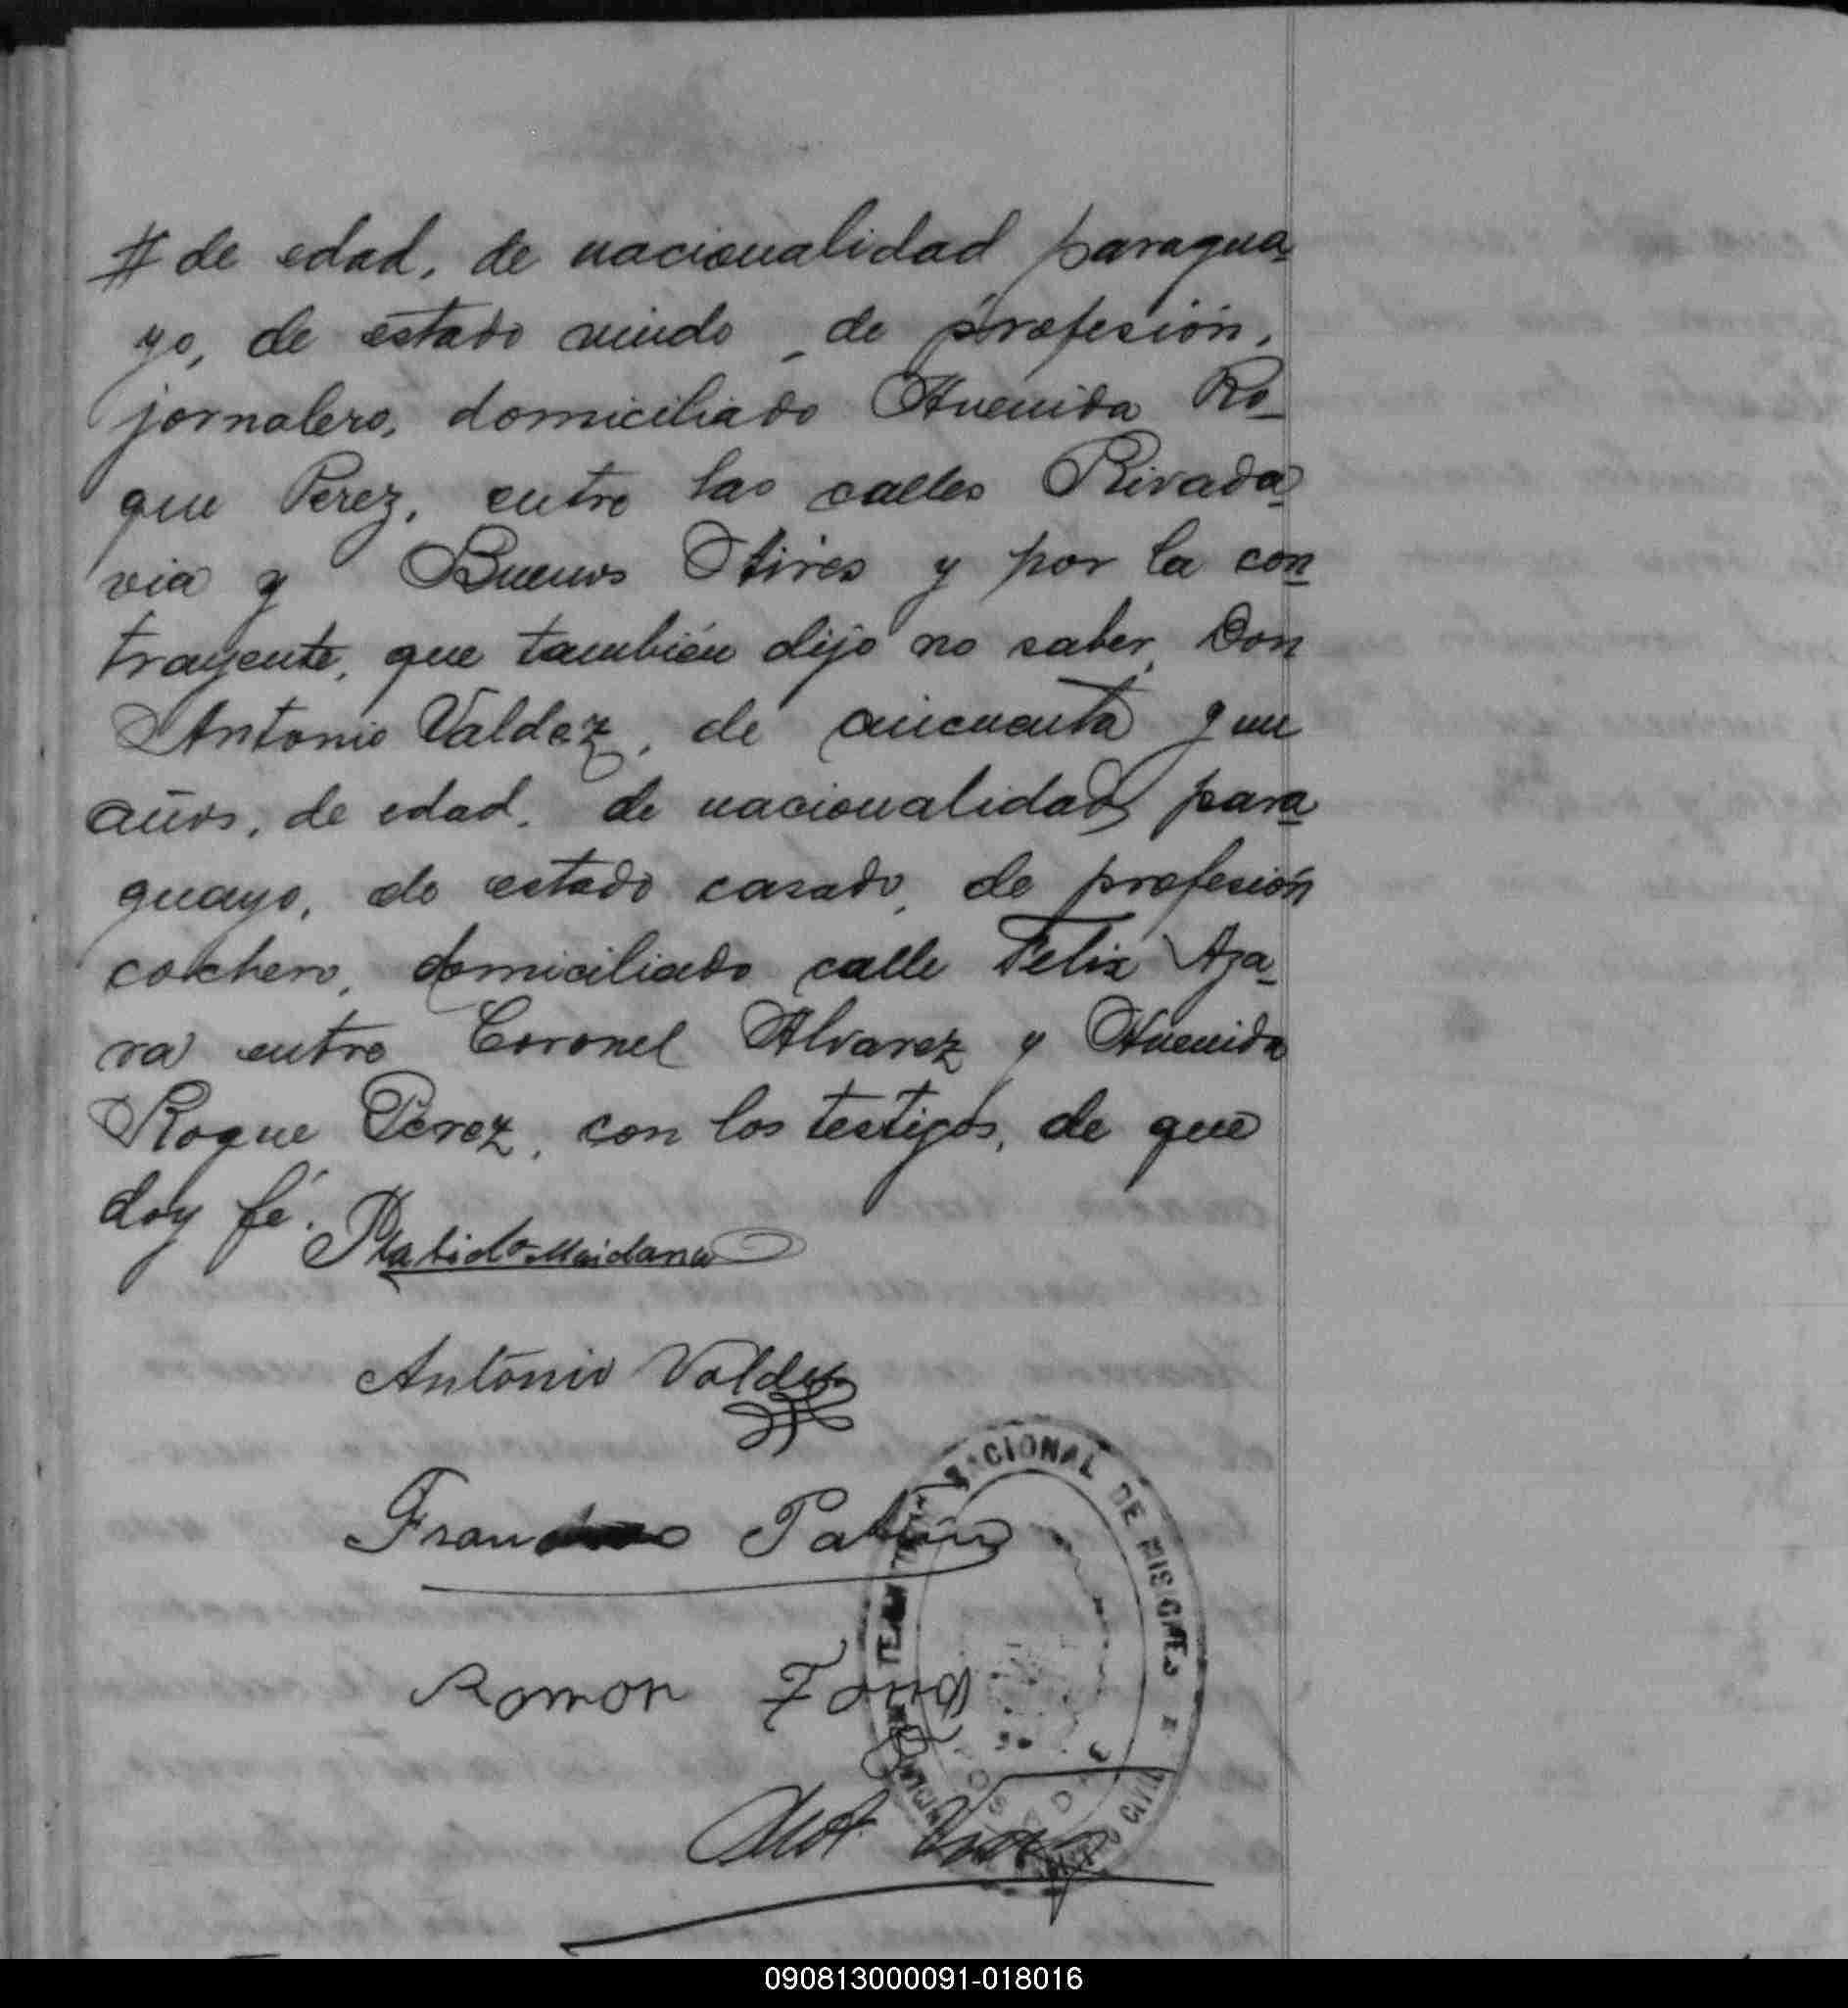 # de edad, de nacionalidad paragua-
yo, de estado viudo, de profesión,
jornalero, domiciliado Avenida Ro-
que Perez, entre las calles Rivada-
via y Buenos Aires y por la con-
trayente, que también dijo no saber, Don
Antonio Valdez, de cincuenta y un
años, de edad, de nacionalidad para-
guayo, de estado casado, de profesión
cochero, domiciliado calle Felix Aza-
ra entre Coronel Alvarez y Avenida
Roque Perez, con los testigos, de que
doy fé.
Plasido Maidana
Antonio Valdez
Francisco Pabon
Ramon
NACIONAL DE MISIONES
CIVIL
090813000091-018016